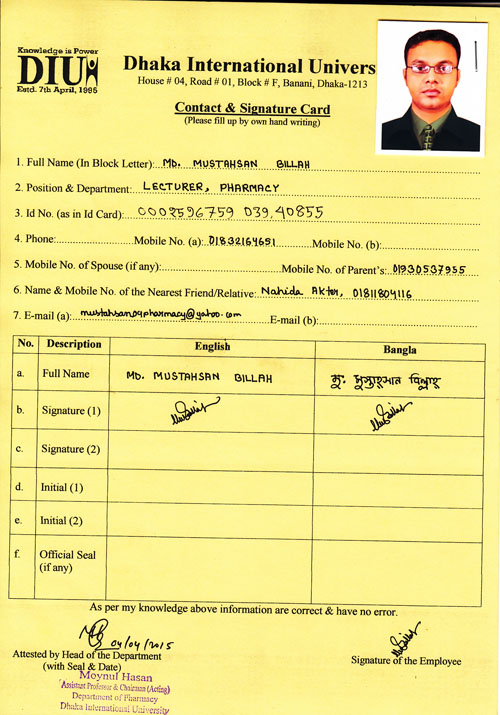 Knowledge is Power
DIU
Estd. 7th April, 1995
Dhaka International Univers
House # 04, Road # 01, Block # F, Banani, Dhaka-1213
Contact & Signature Card
(Please fill up by own hand writing)
1. Full Name (In Block Letter): MD. MUSTAHSAN BILLAH
2. Position & Department: LECTURER, PHARMACY
3. Id No. (as in Id Card): 0002596759 039,40855
4. Phone: Mobile No. (a): 01832164651 Mobile No. (b):
5. Mobile No. of Spouse (if any): Mobile No. of Parent's: 01930537955
6. Name & Mobile No. of the Nearest Friend/Relative: Nahida Akter, 01811804116
7. E-mail (a): mustahsan04pharmacy@yahoo.com E-mail (b):
No. Description English Bangla
a. Full Name MD. MUSTAHSAN BILLAH মু. মুস্তাহসান বিল্লাহ
b. Signature (1)
c. Signature (2)
d. Initial (1)
e. Initial (2)
f. Official Seal
(if any)
As per my knowledge above information are correct & have no error.
04/04/2015
Attested by Head of the Department
(with Seal & Date)
Signature of the Employee
Moynul Hasan
Assistant Professor & Chairman (Acting)
Department of Pharmacy
Dhaka International University